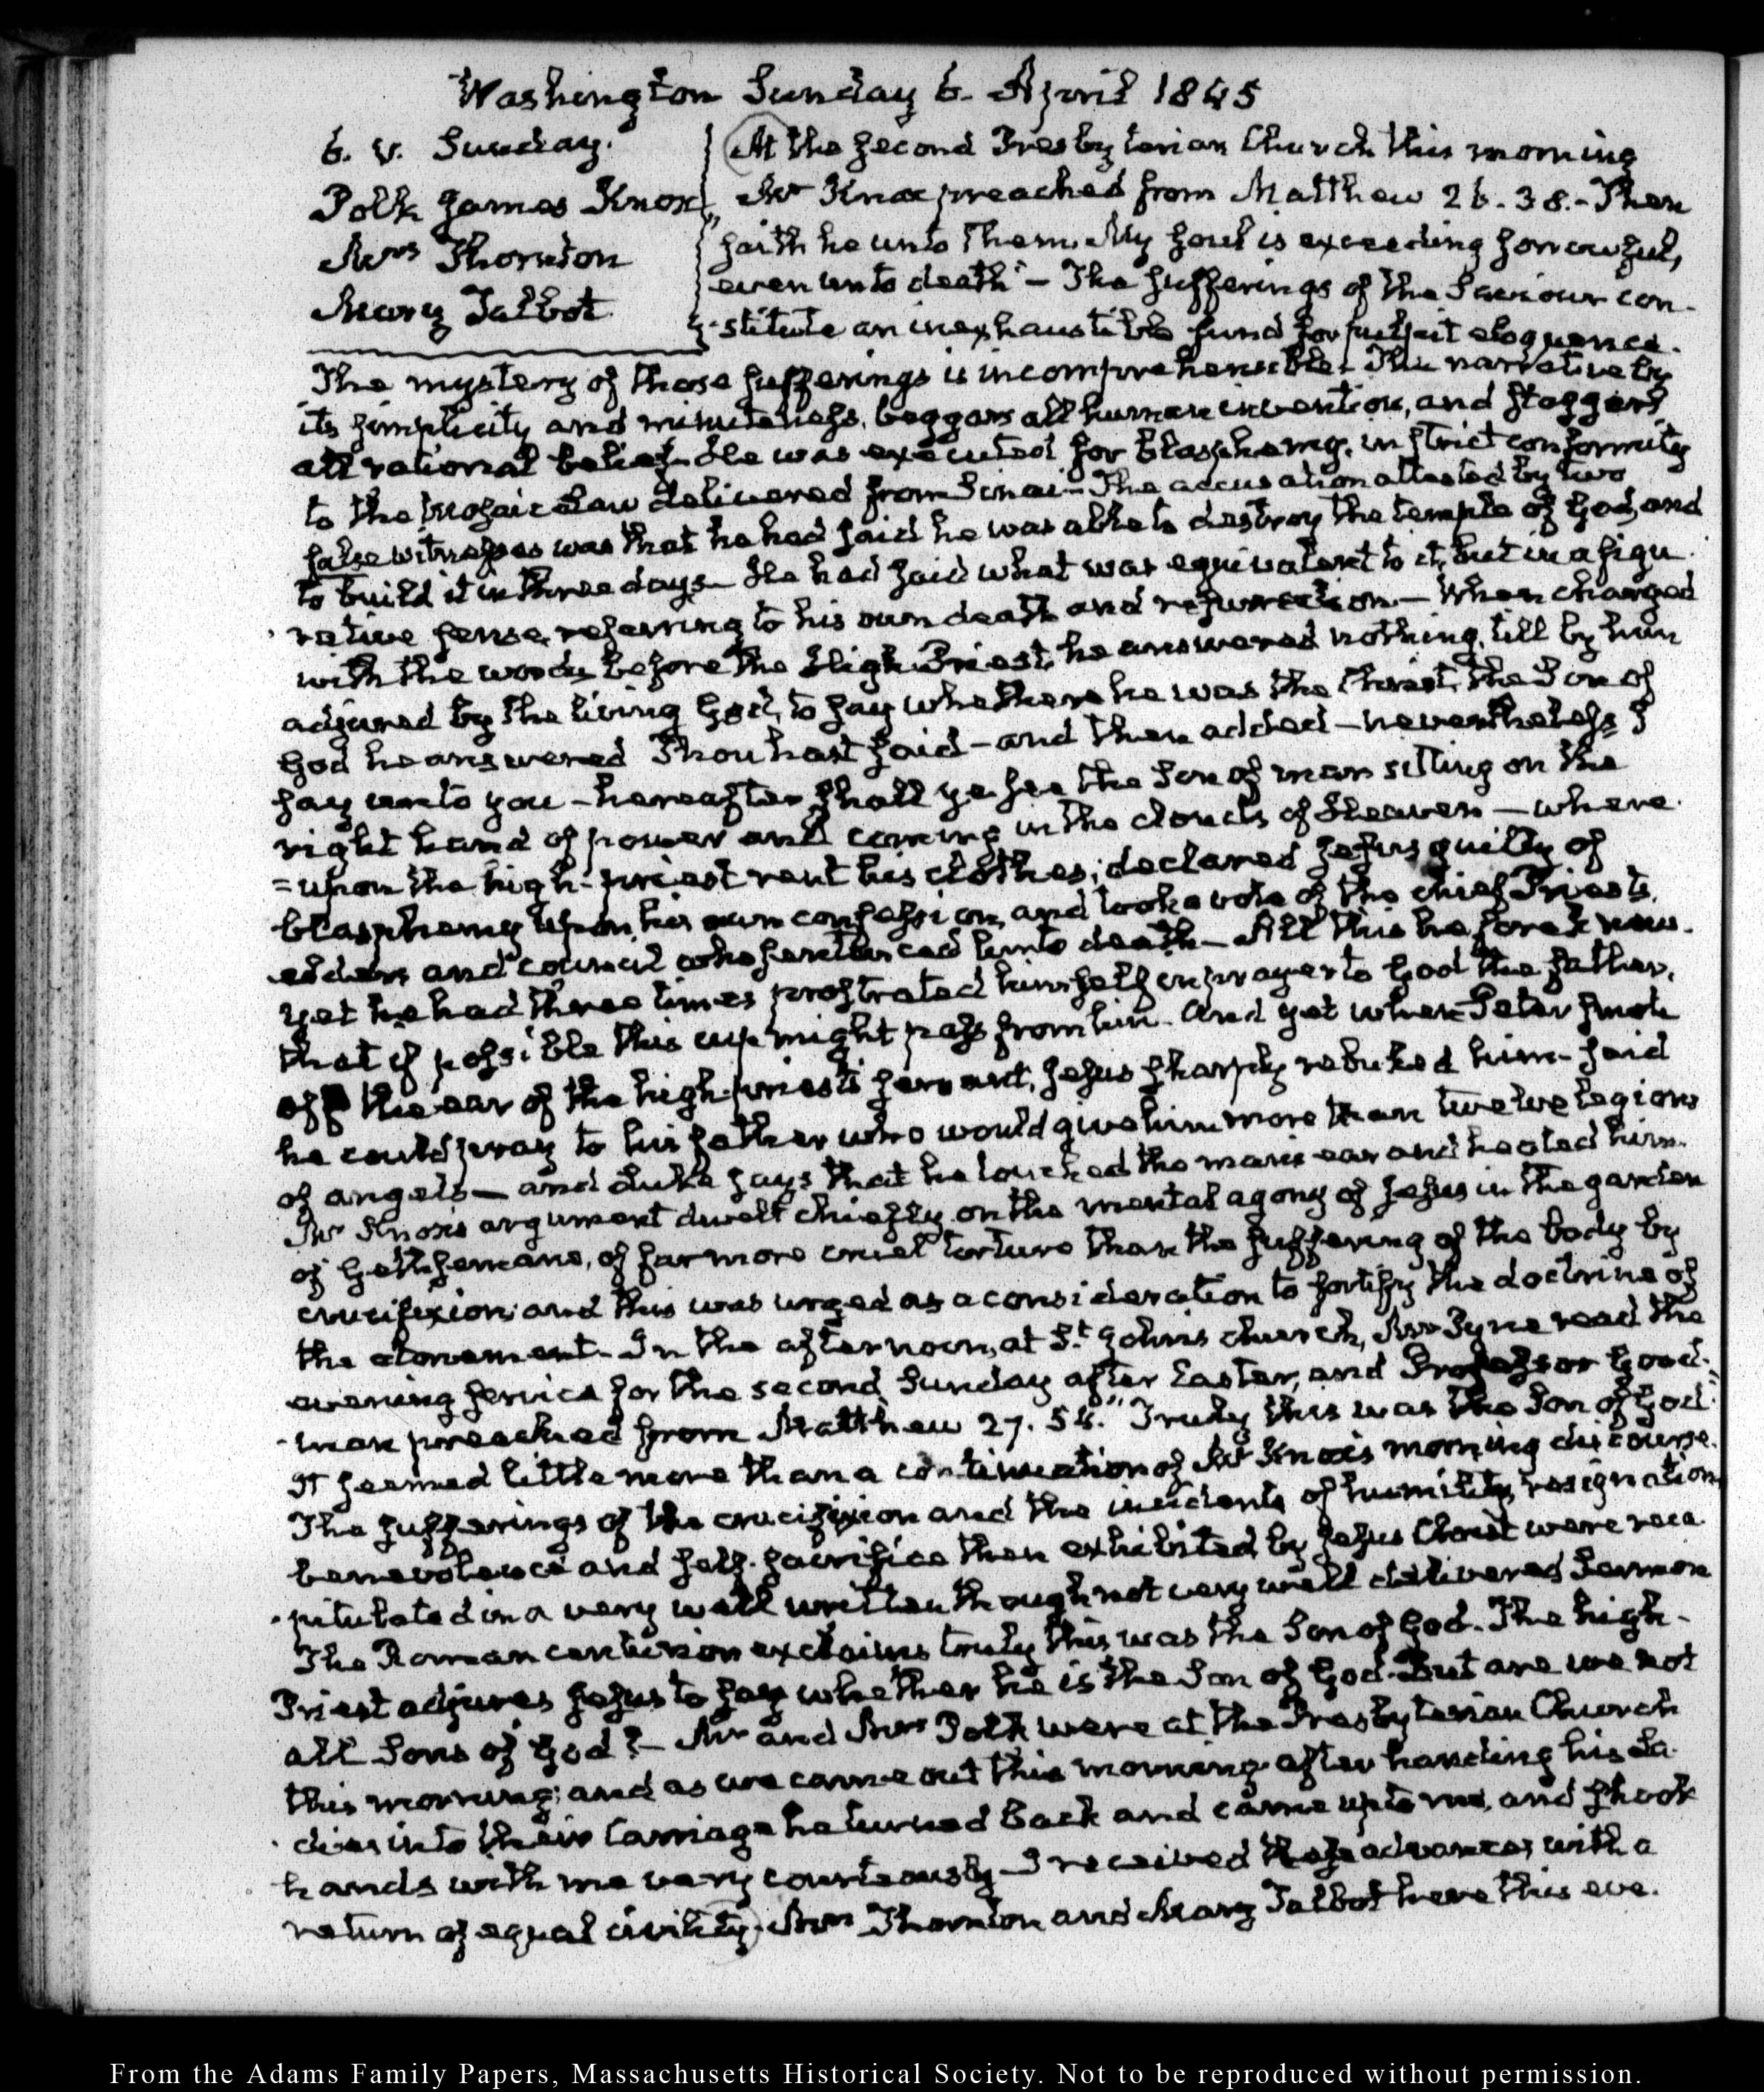 Washington Sunday 6. April 1845
6. V. Sunday.
Polk James Knox
Mrs Thornton
Mary Talbot
At the second Presbyterian Church this morning
Mr Knox preached from Matthew 26. 38.- "Then
saith he unto them. My soul is exceeding sorrowful,
even unto death" — The sufferings of the Saviour con-
-stitute an inexhaustible fund for pulpit eloquence.
The mystery of those sufferings is incomprehensible. The narrative by
its simplicity and minuteness, beggars all human invention, and staggers
all rational belief. He was executed for blasphemy, in strict conformity
to the Mosaic Law delivered from Sinai— The accusation attested by two
false witnesses was that he had said he was able to destroy the temple of God, and
to build it in three days— He had said what was equivalent to it, but in a figu-
-rative sense, referring to his own death and resurrection— When charged
with the words before the High Priest, he answered nothing, till by him
adjured by the living God, to say whether he was the Christ, the Son of
God he answered Thou hast said—and then added—nevertheless I
say unto you—hereafter shall ye see the Son of man sitting on the
right hand of power and coming in the clouds of Heaven—where
=upon the high-priest rent his clothes; declared Jesus guilty of
blasphemy upon his own confession, and took a vote of the chief Priests,
elders and council who sentenced him to death— All this he foreknew.
yet he had three times prostrated himself in prayer to God the father,
that if possible this cup might pass from him. And yet when Peter smote
off the ear of the high-priest's servant, Jesus sharply rebuked him—said
he could pray to his father who would give him more than twelve legions
of angels—and Luke says that he touched the man's ear and healed him.
Mr Knox's argument dwelt chiefly on the mental agony of Jesus in the garden
of Gethsemane, of far more cruel torture than the suffering of the body by
crucifixion; and this was urged as a consideration to fortify the doctrine of
the atonement. In the afternoon, at St. John's church, Mr Pyne read the
evening service for the second Sunday after Easter, and Professor Good-
-man preached from Matthew 27. 54. "Truly this was the Son of God."
It seemed little more than a continuation of Mr Knox's morning discourse.
The sufferings of the crucifixion and the incidents of humility, resignation
benevolence and self-sacrifice then exhibited by Jesus Christ were reca-
-pitulated in a very well written though not very well delivered Sermon
The Roman centurion exclaims truly this was the Son of God. The high-
Priest adjures Jesus to say whether he is the Son of God. But are we not
all Sons of God?— Mr and Mrs Polk were at the Presbyterian Church
this morning; and as we came out this morning after handing his La-
-dies into their Carriage he turned back and came up to me, and shook
hands with me very courteously—I received these advances with a
return of equal civility. Mrs Thornton and Mary Talbot here this eve.
From the Adams Family Papers, Massachusetts Historical Society. Not to be reproduced without permission.